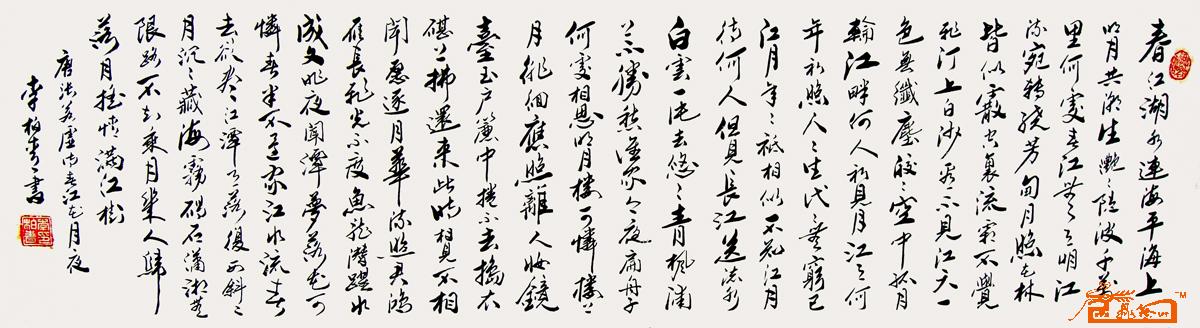 春江潮水連海平海上
明月共潮生灩灩隨波千萬
里何處春江無月明江
流宛轉繞芳甸月照花林
皆似霰空裏流霜不覺
飛汀上白沙看不見江天一
色無纖塵皎皎空中孤月
輪江畔何人初見月江月何
年初照人人生代代無窮已
江月年年祗相似不知江月
待何人但見長江送流水
白雲一片去悠悠青楓浦
上不勝愁誰家今夜扁舟子
何處相思明月樓可憐樓上
月徘徊應照離人妝鏡
臺玉戶簾中捲不去搗衣
砧上拂還來此時相望不相
聞願逐月華流照君鴻
雁長飛光不度魚龍潛躍水
成文昨夜閒潭夢落花可
憐春半不還家江水流春
去欲盡江潭月落復西斜斜
月沉沉藏海霧碣石瀟湘無
限路不知乘月幾人歸
落月搖情滿江樹
唐張若虛詩春江花月夜
李柏書